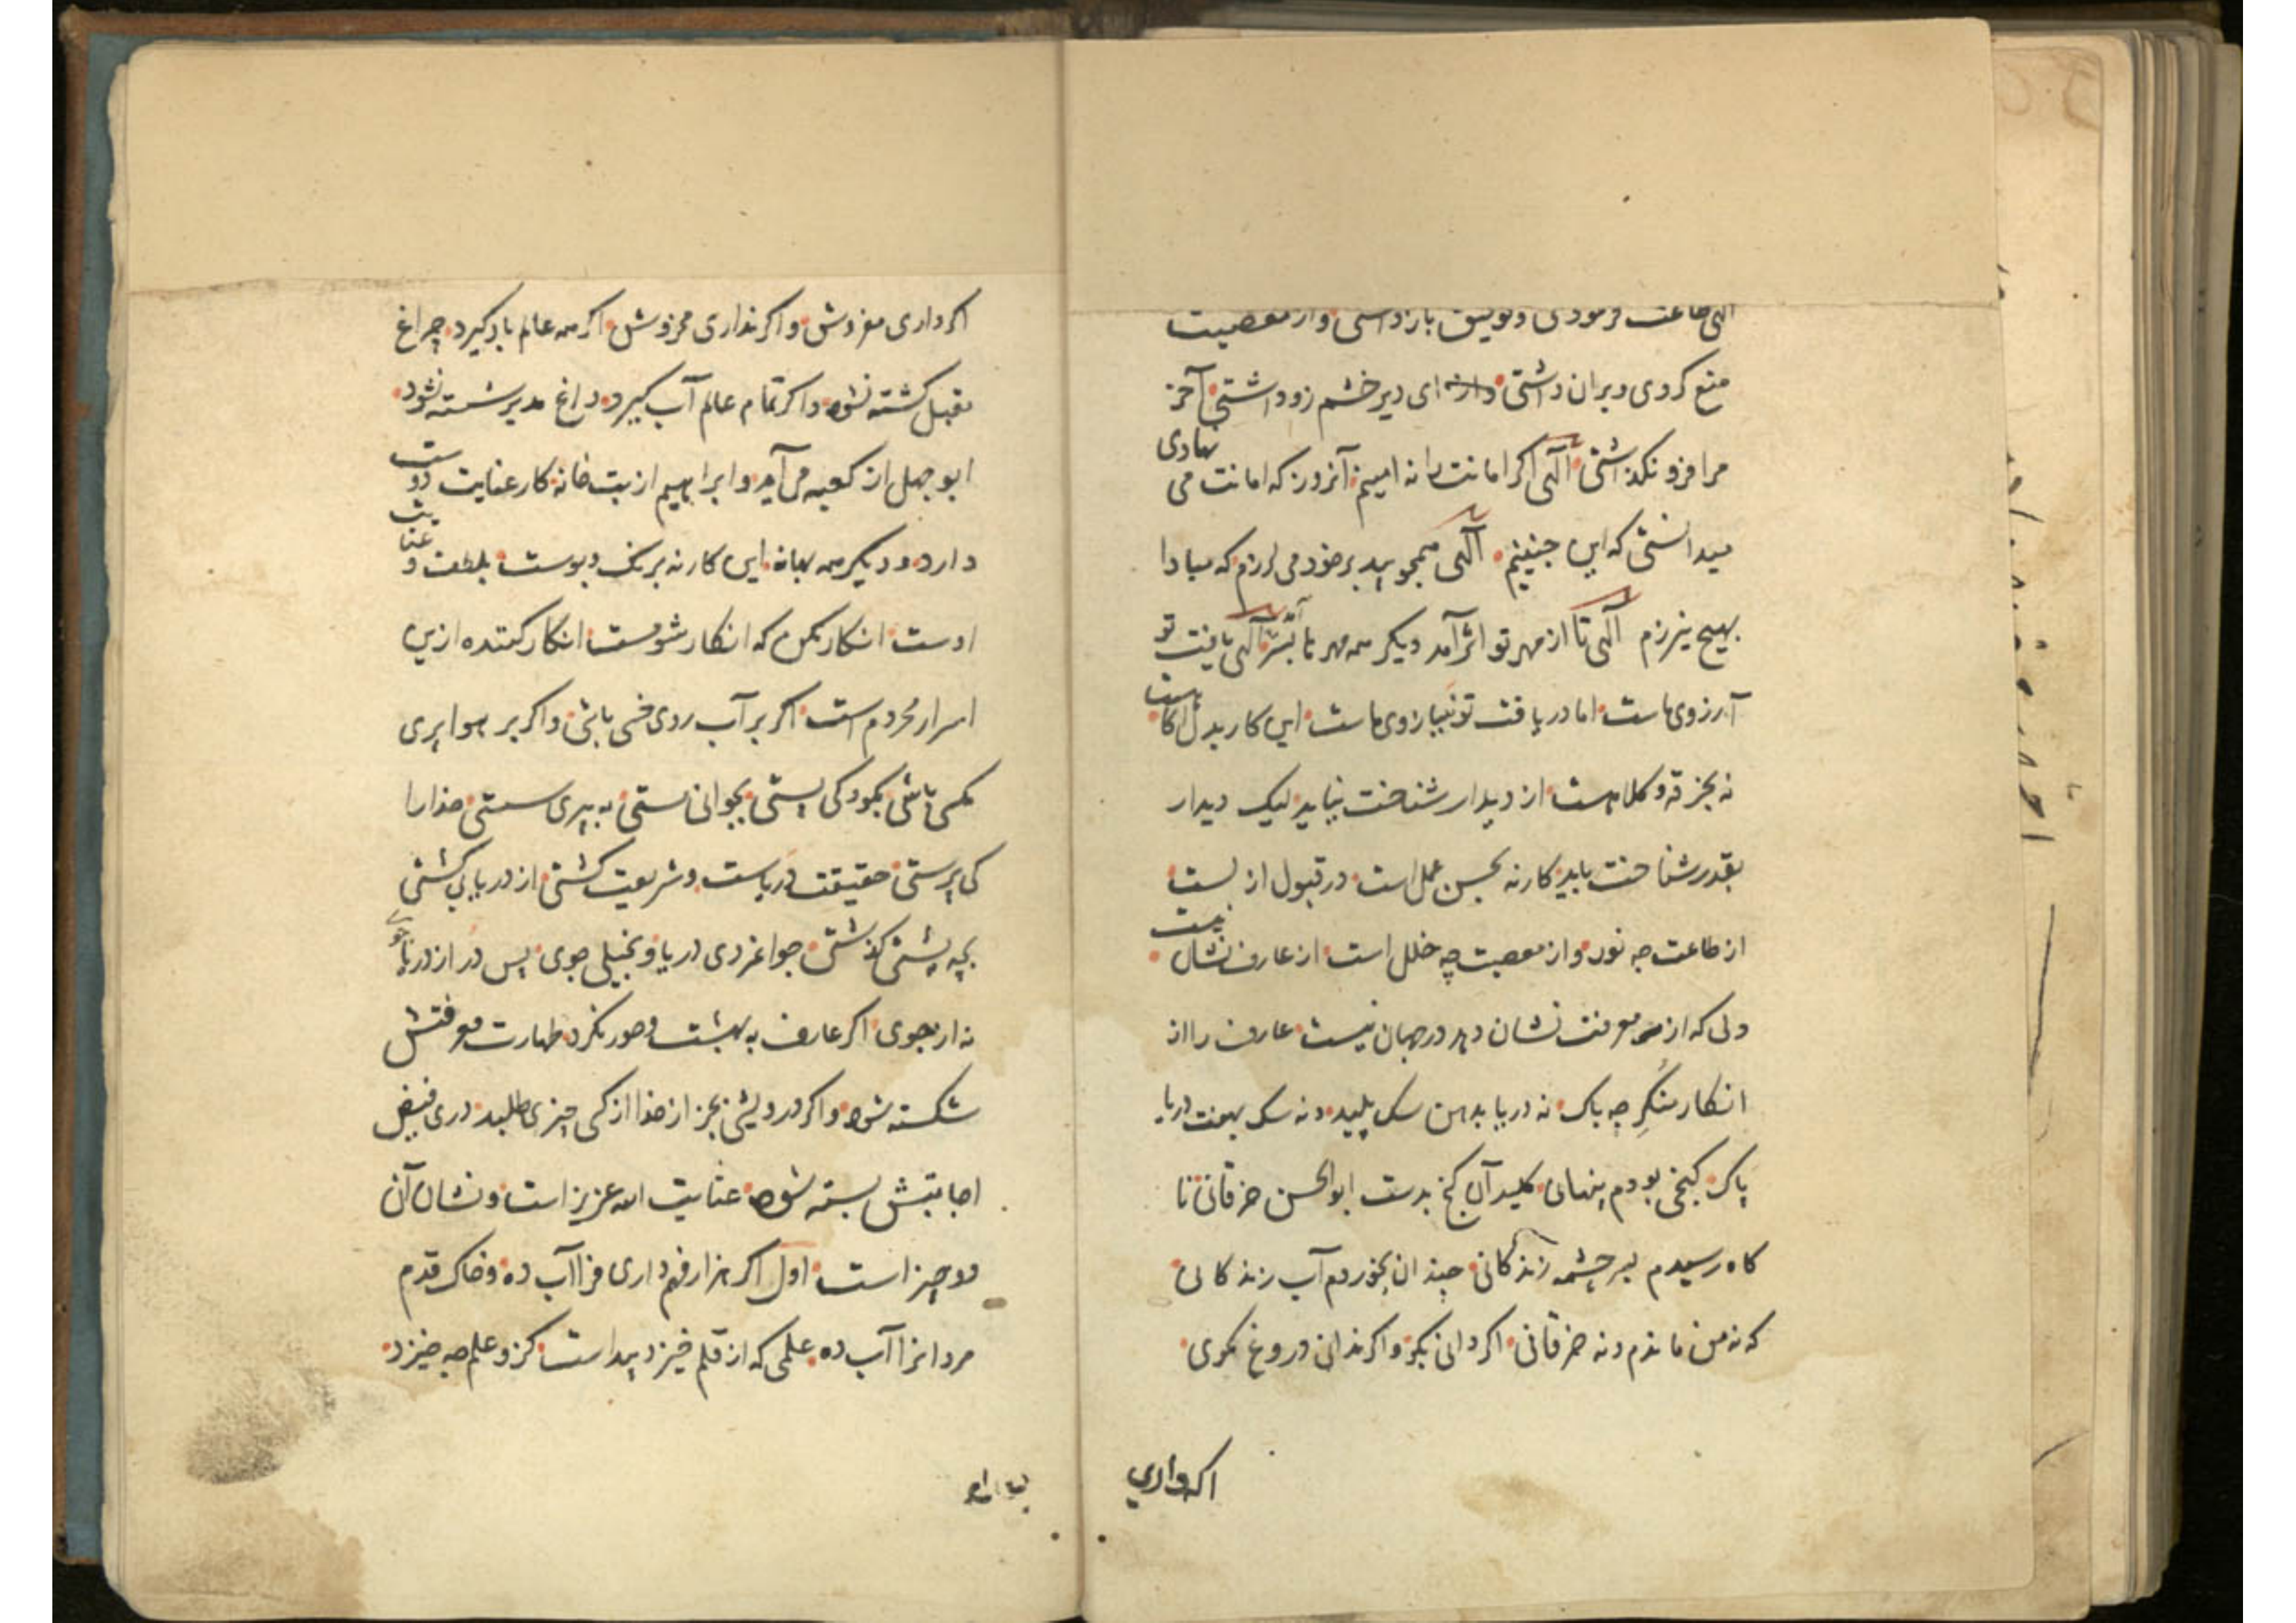 الهی طاعت فرمودی و توفیق بازداشتی و از معصیت
منع کردی و بران داشتی ای دیر خشم زود آشتی آخر
مرا فرو نگذاشتی الهی اگر امانت را نه امینم آنروز که امانت می نهادی
میدانستی که این چنینم الهی همچو بید بر خود می لرزم که مبادا
بهیچ نیرزم الهی تا از مهر تو اثر آمد دیگر همه مهرها بسر آمد الهی یافت تو
آرزوی ماست اما دریافت تو نه ببازوی ماست این کار بدل آگاهست
نه بخرقه و کلاهست از دیدار شناخت نیاید لیک دیدار
بقدر شناخت باید کار نه بحسن عمل است در قبول ازلست
از طاعت چه نور و از معصیت چه خلل است از عارف نشان نیست
ولی که از معرفت نشان دهد در جهان نیست عارف را از
انکار منکر چه باک نه دریا بدهن سک پلید و نه سک بهفت دریا
پاک کنجی بودم پنهانی کلید آن کنج بدست ابوالحسن خرقانی تا
کاه رسیدم بسر چشمه زندکانی چندان بخوردم آب زندکانی
که نه من ماندم و نه خرقانی اکر دانی بکو و اکر ندانی دروغ مکوی
اکر داری
اکر داری مفروش و اکر نداری مخروش اکر همه عالم باد کیرد چراغ
مقبل کشته نشود و اکر تمام عالم آب کیرد داغ مدبر شسته نشود
ابوجهل از کعبه می آید و ابراهیم از بت خانه کار عنایت دوست
دارد و دیکر همه بهانه این کار نه برنک و بوست بلطف و عنایت
اوست انکار مکن که انکار شومست انکار کننده ازین
اسرار محرومست اکر بر آب روی خسی باشی و اکر بر هوا پری
مکسی باشی بکودکی پستی بجوانی مستی به پیری سستی خدا را
کی پرستی حقیقت دریاست و شریعت کشتی از دریا بی کشتی
بچه پشتی کذشتی جوانمردی دریا و بخیلی جوی پس در از دریا جوی
نه از جوی اکر عارف به بهشت و حور نکرد طهارت معرفتش
شکسته شود و اکر درویشی بجز از خدا از کسی چیزی طلبد در فیض
اجابتش بسته شود عنایت الله عزیز است و نشان آن
دو چیز است اول اکر هزار فهم داری فرا آب ده و خاک قدم
مردانرا آب ده علمی که از قلم خیزد پیداست کزو علم چه خیزد